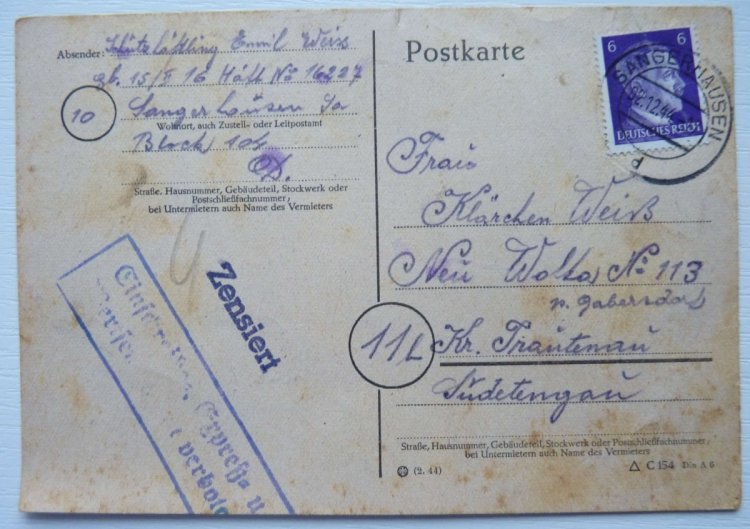 Absender: Schutzhäftling Emil Weiss
gb. 15/I 16 Häft No 16227
10
Sangerhausen Sa
Wohnort, auch Zustell- oder Leitpostamt
Block 10
Straße, Hausnummer, Gebäudeteil, Stockwerk oder
Postschließfachnummer,
bei Untermietern auch Name des Vermieters
Zensiert
verboten
Postkarte
6 6
DEUTSCHES REICH
SANGERHAUSEN
12.44
d
Frau
Klärchen Weiß
Neu Wolta No 113
p. Gabersdorf
11b Kr. Trautenau
Sudetengau
Straße, Hausnummer, Gebäudeteil, Stockwerk oder Postschließfachnummer,
bei Untermietern auch Name des Vermieters
(2. 44)
C 154 Din A 6